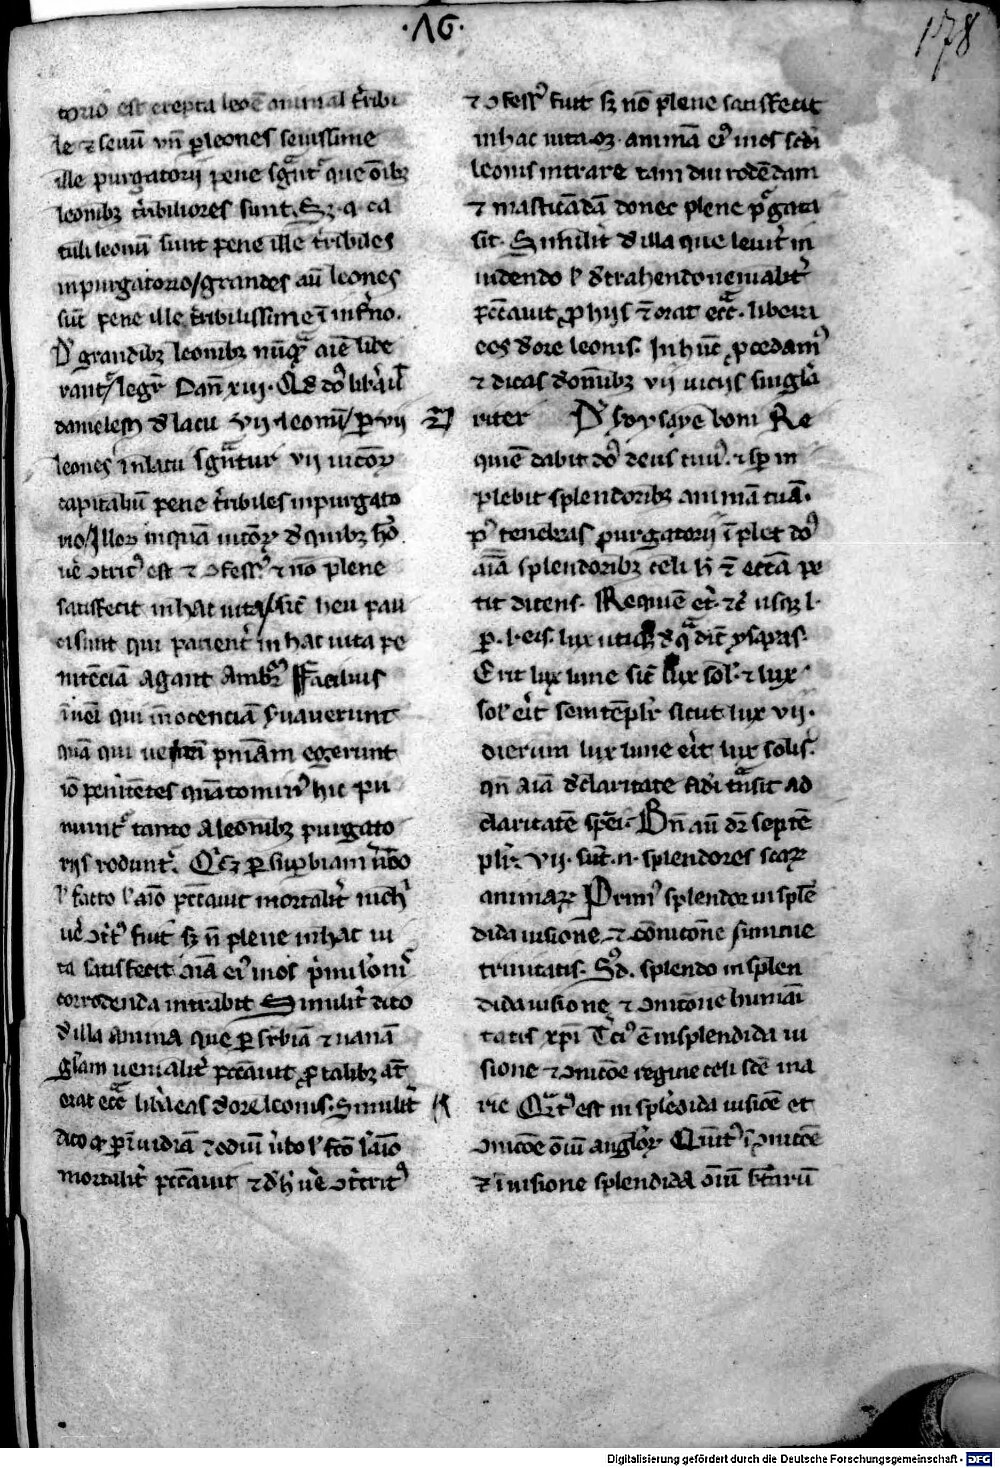 ·16·
178
torio est erepta leoē animal t'ribi
le ⁊ seuū vn̄ p̲ leones seuissime
ille purgatorij pene sg̅nt᷑ que oi̅bꝫ
leonibꝫ t'ribiliores sunt. Sꝫ q ca
tuli leonū sunt pene ille t'ribiles
in purgatorio / grandes aū leones
su̅t pene ille t'ribilissime ī inf'no.
D' grandibꝫ leonibꝫ nūqͣ aīe libe
rant᷑ / leg᷑ Dan̄ xiii.
danielem d' lacu vij leonū / p̲ vij
leones in lacu sg̅nt᷑ur vij uicioꝝ
capitaliū pene t'ribiles in purgato
rio / Illoꝝ inquā uicioꝝ d' quibꝫ hō
ue' ↄtrit᷒ est ⁊ ↄfess᷒ ⁊ nō plene
satisfecit in hac uita / sic̄ heu pau
ci sunt qui pacient' in hac uita pe
nitēciā agant Ambr᷒ Facilius
īueī qui īnocenciā s'uauerunt
quā qui ueram pn̄iam egerunt
iō penitētes quātominꝰ hic pu
niunt᷑ tanto a leonibꝫ purgato
rijs rodunt᷑. p̲ sup̲biam u̅bo
l' facto l' aīo pccauit mortalit' nich'
ue' ↄt't᷒ fuit sꝫ n̄ plene in hac ui
ta satisfecit aīa ei᷒ īnos p'mi leonis
corrodenda intrabit Similit' dico
d' illa anima que p̲ sup̲biā ⁊ uanā
gl'am uenialit' pccauit p̲ talibꝫ at̄
orat ecc̄a lib'a eas d' ore leonis. Similit'
dico ꝙ p̲ īuidiā ⁊ odiū u̅bo l' fc̄o l' aīo
mortalit' pccauit ⁊ d' h' ue' ↄtrit᷒
⁊ ↄfess᷒ fuit sꝫ nō plene satisfecit
in hac uita animā ei᷒ īnos scdi
leonis intrare tam diu rodēdam
⁊ masticādā donec plene p'gata
sit. Similit' d' illa que leuit' in
uidendo l' d'trahendo uenialit'
peccauit p̲ hijs ⁊ orat ecc̄a. libera
eos d' ore leonis. In hūc p̲cedam᷒
⁊ dicas d' omībꝫ vij uicijs singl'a
riter D' so ysaye boni Re
quiē dabit do᷒ deus tuus. ⁊ sp̲ in
plebit splendoribꝫ animā tuā.
p᷒ tenebras purgatorij īplet do᷒
aīam splendoribꝫ celi h' ē ecc̄am pe
tit dicens. Requiē et'. ⁊c̄ usqꝫ l.
p̲. l. eis. lux utiqꝫ d' qͣ dic̄ ysayas.
Erit lux lune sic̄ lux sol'. ⁊ lux
sol' erit septēpl'r sicut lux vij.
dierum lux lune erit lux solis.
qn̄ aīa d' claritate fidi trāsit ad
claritatē sp̄ei. Bn̄ aū dr̄ septē
pl'r. vij. su̅t. n. splendores scaꝝ
animaꝝ Prim᷒ splendor in splē
dida uisione ⁊ cōnicōne summe
trinitatis. Sd̄. splendo in splen
dida uisione ⁊ ↄnicōne humāi
tatis xp̄i Tci᷒ ē in splendida ui
sione ⁊ ↄnicōe regine celi scē ma
rie Qͣrt᷒ est in splēdida uisiōe et
ↄnicōe oīu angl'oꝝ Quīt᷒ ī ↄnicōe
⁊ ī uisione splendida oīu b̅tarū
Digitalisierung gefördert durch die Deutsche Forschungsgemeinschaft - DFG